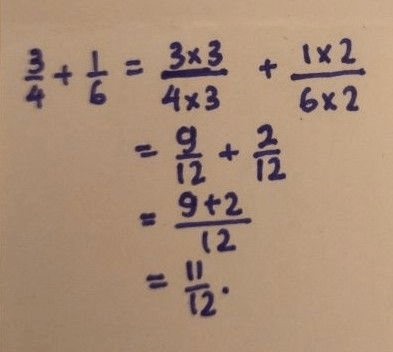 3/4 + 1/6 = 3×3/4×3 + 1×2/6×2
= 9/12 + 2/12
= 9+2/12
= 11/12.